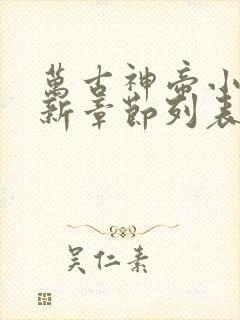 萬古神帝小
新章節列表
吴仁素